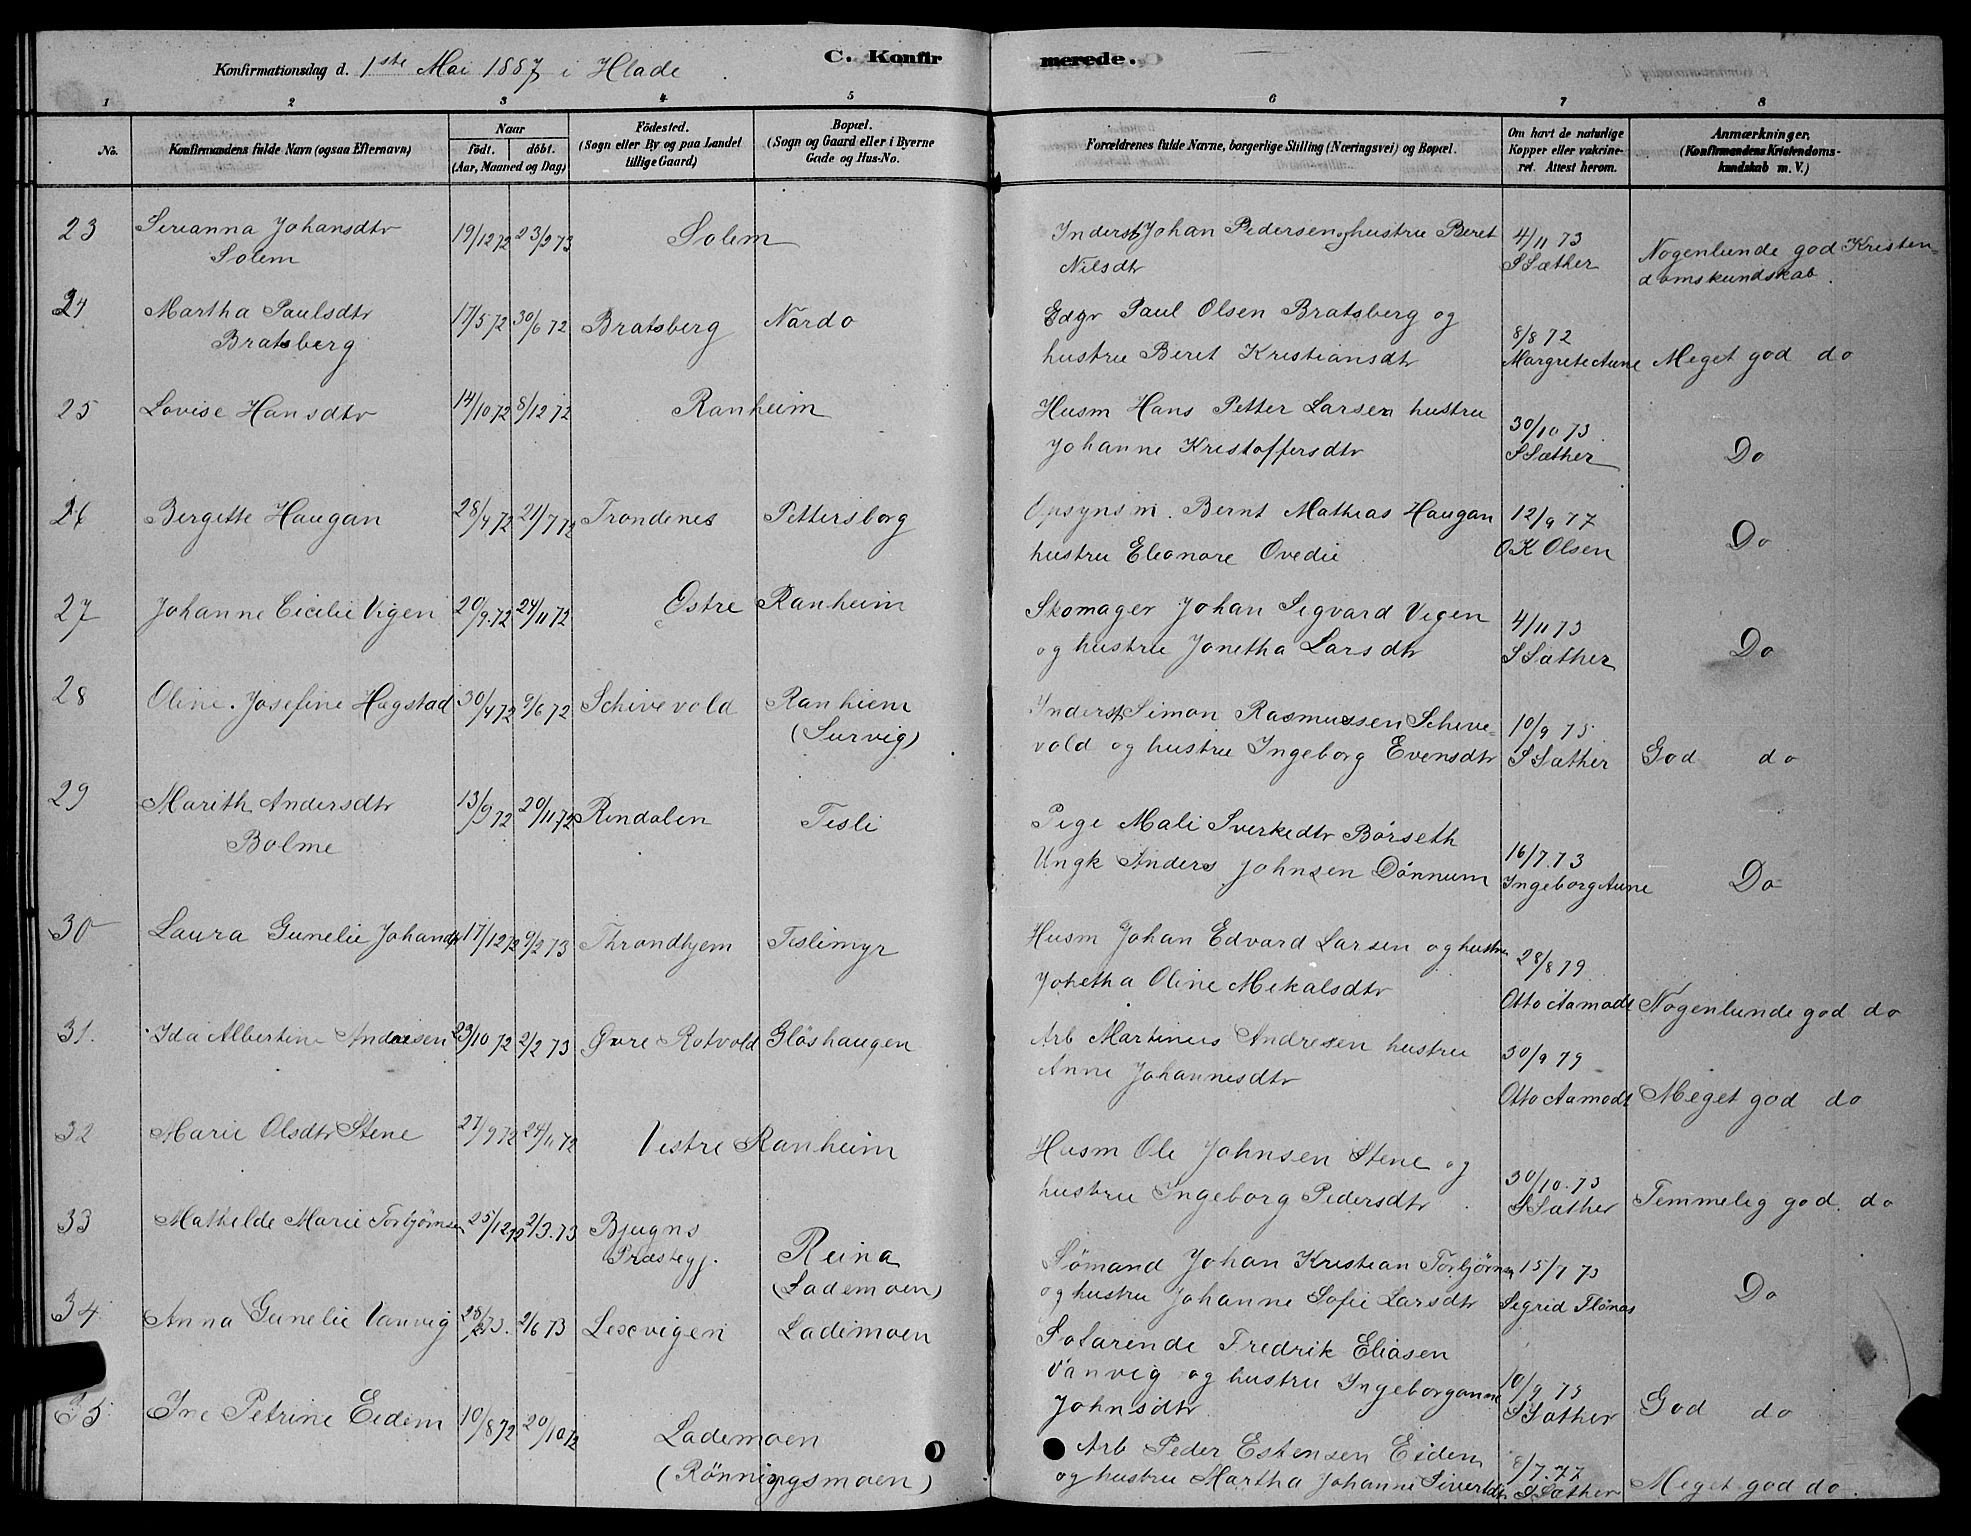 C. Konfirmerede.
Konfirmationsdag d. 1ste Mai 1887 i Hlade
1 2 3 4 5 6 7 8
No.
Konfirmandens fulde Navn (ogsaa Efternavn)
Naar
født. döbt.
(Aar, Maaned og Dag)
Födested.
(Sogn eller By og paa Landet
tillige Gaard)
Bopæl.
(Sogn og Gaard eller i Byerne
Gade og Hus-No.
Forældrenes fulde Navne, borgerlige Stilling (Næringsvei) og Bopæl.
Om havt de naturlige
Kopper eller vakcine-
ret. Attest herom.
Anmærkninger,
(Konfirmandens Kristendoms-
kundskab m. V.)
23 Serianna Johansdtr 19/12 72 23/2 73 Solem Inderst Johan Pedersen og hustru Beret 4/11 73
Solem Nilsdtr S Sæther Nogenlunde god Kristen-
domskundskab.
24 Martha Paulsdtr 17/5 72 30/6 72 Bratsberg Nardo Edgr Paul Olsen Bratsberg og 8/8 72
Bratsberg hustru Beret Kristiansdtr Margrete Aune Meget god do
25 Lovise Hansdtr 14/10 72 8/12 72 Ranheim Husm Hans Petter Larsen hustru 30/10 73
Johanne Kristoffersdtr S Sæther Do
26 Bergette Haugan 28/4 72 21/7 72 Trondenes Pettersborg Opsynsm. Bernt Mathias Haugan 12/9 77
hustru Eleonore Ovedie O K Olsen Do
27 Johanne Cicilie Vigen 20/9.72 24/11 72 Østre Ranheim Skomager Johan Sigvard Vigen 4/11 73
og hustru Jonetha Larsdtr S Sæther Do
28 Oline. Josefine Hagstad 30/4 72 9/6 72 Schivevold Ranhiem Inderst Simon Rasmussen Schive- 10/9 75
(Survig) vold og hustru Ingeborg Evensdtr S Sæther God do
29 Marith Andersdtr 13/9 72 20/11 72 Rindalen Tesli Pige Mali Sverkedtr Börseth 16/7.73
Bolme Ungk Anders Johnsen Dönnum Ingeborg Aune Do
30 Laura Gunelie Johandtr 17/12 72 9/2 73 Throndhjem Teslimyr Husm Johan Edvard Larsen og hustru 28/8 79
Johetha Oline Mikalsdtr Otto Aamodt Nogenlunde god do
31. Ida Albertine Andresen 23/10 72 2/2 73 Øvre Rotvold Glöshaugen Arb Martinus Andresen hustru 30/9 79
Anne Johannesdtr Otto Aamodt Meget god do
32 Marie Olsdtr Stene 27/9 72 24/11 72 Vestre Ranheim Husm Ole Johnsen Stene og 30/10.73
hustru Ingeborg Pedersdtr S Sæther Temmelig god. do
33 Mathilde Marie Torbjörnsen 25/12.72 2/3.73 Bjugns Reina Sömand Johan Kristian Torbjörnsen 15/7 73
Præstegj. (Lademoen) og hustru Johanne Sofie Larsdtr Sigrid Flönes Do
34 Anna Gunelie Vanvig 28/2 73. 2/6 73 Lexvigen Lademoen Solarende Fredrik Eliasen
Vanvig og hustru Ingeborganne 10/9 75
Johnsdtr S Sæther God do
35 Ine Petrine Eidem 10/8 72 20/10 72 Lademoen Arb Peder Estensen Eidem 8/7.77
(Rönningsmoen) og hustru Martha Johanne Sivertdtr S Sæther Meget god do.